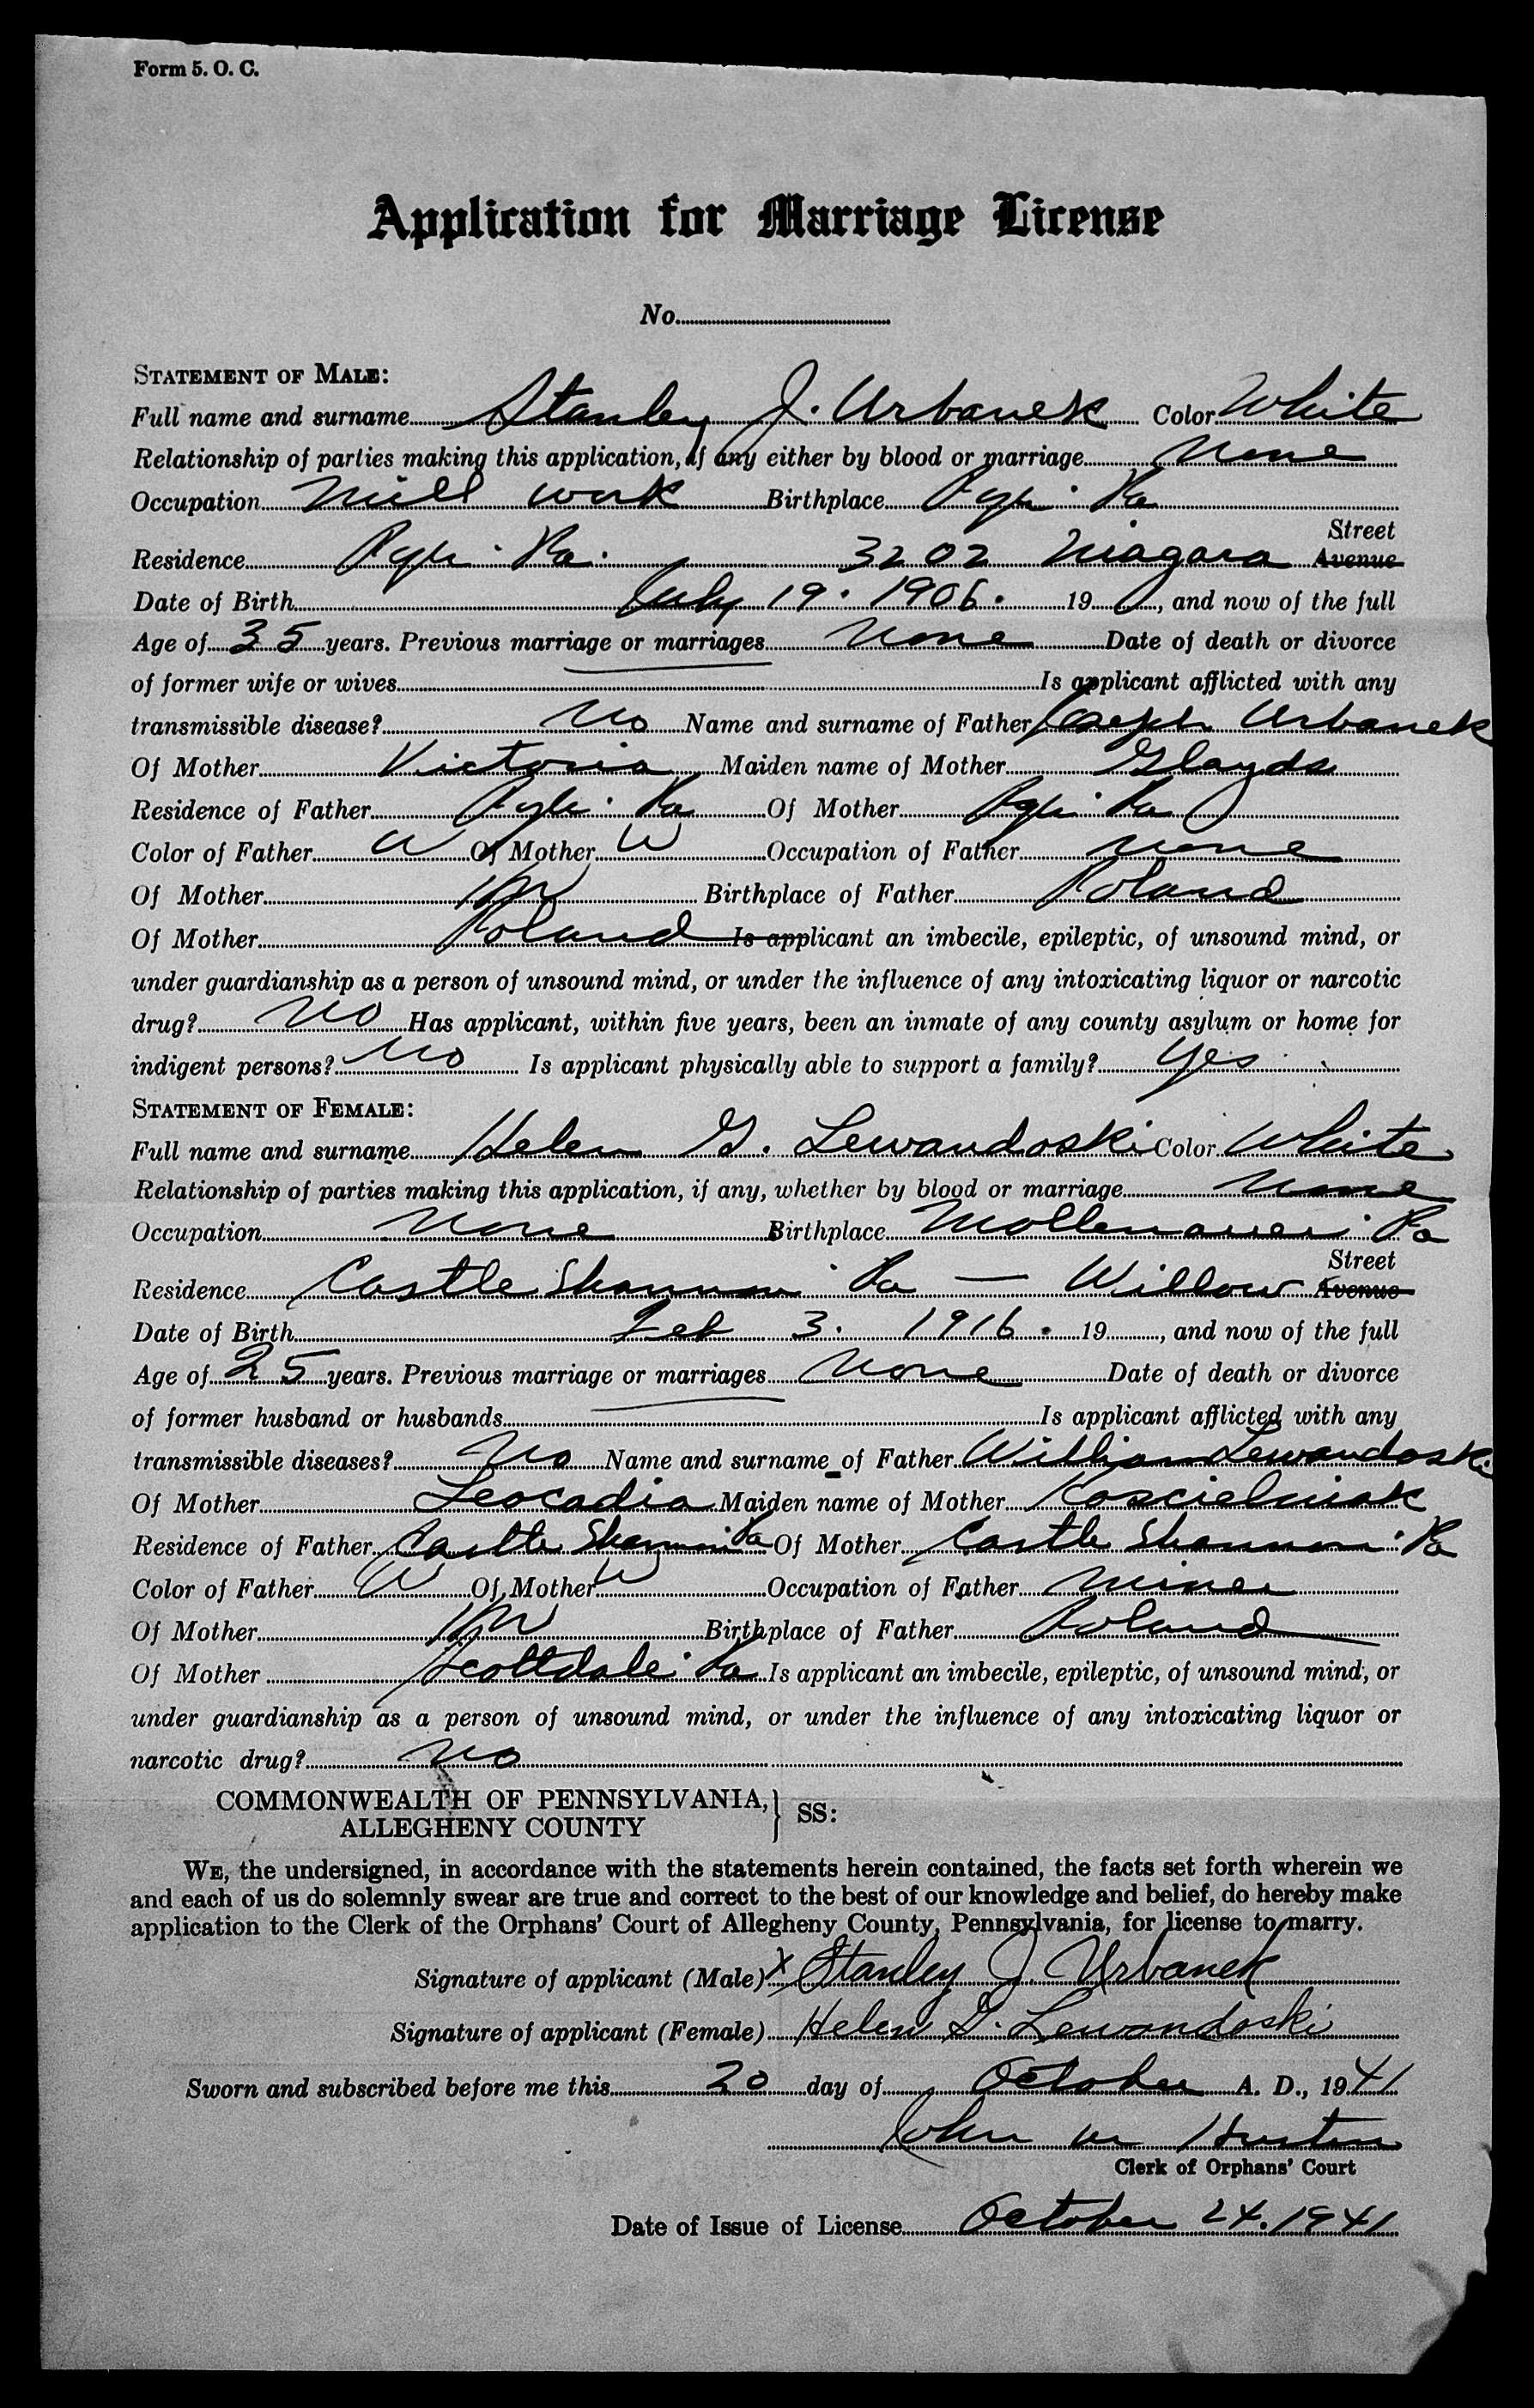 Form 5. O. C.
Application for Marriage License
No.
STATEMENT OF MALE:
Full name and surname Stanley J. Urbanek Color White
Relationship of parties making this application, if any either by blood or marriage None
Occupation Mill work Birthplace Pgh. Pa
Street
Residence Pgh. Pa. 3202 Niagara Avenue
Date of Birth July 19. 1906. 19 , and now of the full
Age of 35 years. Previous marriage or marriages None Date of death or divorce
of former wife or wives Is applicant afflicted with any
transmissible disease? No Name and surname of Father Joseph Urbanek
Of Mother Victoria Maiden name of Mother
Residence of Father Pgh. Pa Of Mother Pgh. Pa
Color of Father W Of Mother W Occupation of Father None
Of Mother HW Birthplace of Father Poland
Of Mother Poland Is applicant an imbecile, epileptic, of unsound mind, or
under guardianship as a person of unsound mind, or under the influence of any intoxicating liquor or narcotic
drug? No Has applicant, within five years, been an inmate of any county asylum or home for
indigent persons? No Is applicant physically able to support a family? Yes
STATEMENT OF FEMALE:
Full name and surname Helen G. Lewandoski Color White
Relationship of parties making this application, if any, whether by blood or marriage None
Occupation None Birthplace Mollenauer Pa
Street
Residence Castle Shannon Pa — Willow Avenue
Date of Birth Feb 3. 1916. 19 , and now of the full
Age of 25 years. Previous marriage or marriages None Date of death or divorce
of former husband or husbands Is applicant afflicted with any
transmissible diseases? No Name and surname of Father William Lewandoski
Of Mother Leocadia Maiden name of Mother Koscielniak
Residence of Father Castle Shannon Pa Of Mother Castle Shannon Pa
Color of Father W Of Mother W Occupation of Father Miner
Of Mother HW Birthplace of Father Poland
Of Mother Scottdale Pa Is applicant an imbecile, epileptic, of unsound mind, or
under guardianship as a person of unsound mind, or under the influence of any intoxicating liquor or
narcotic drug? No
COMMONWEALTH OF PENNSYLVANIA, } SS:
ALLEGHENY COUNTY
WE, the undersigned, in accordance with the statements herein contained, the facts set forth wherein we
and each of us do solemnly swear are true and correct to the best of our knowledge and belief, do hereby make
application to the Clerk of the Orphans' Court of Allegheny County, Pennsylvania, for license to marry.
Signature of applicant (Male) x Stanley J. Urbanek
Signature of applicant (Female) Helen G. Lewandoski
Sworn and subscribed before me this 20 day of October A. D., 1941
John m Huston
Clerk of Orphans' Court
Date of Issue of License October 24. 1941